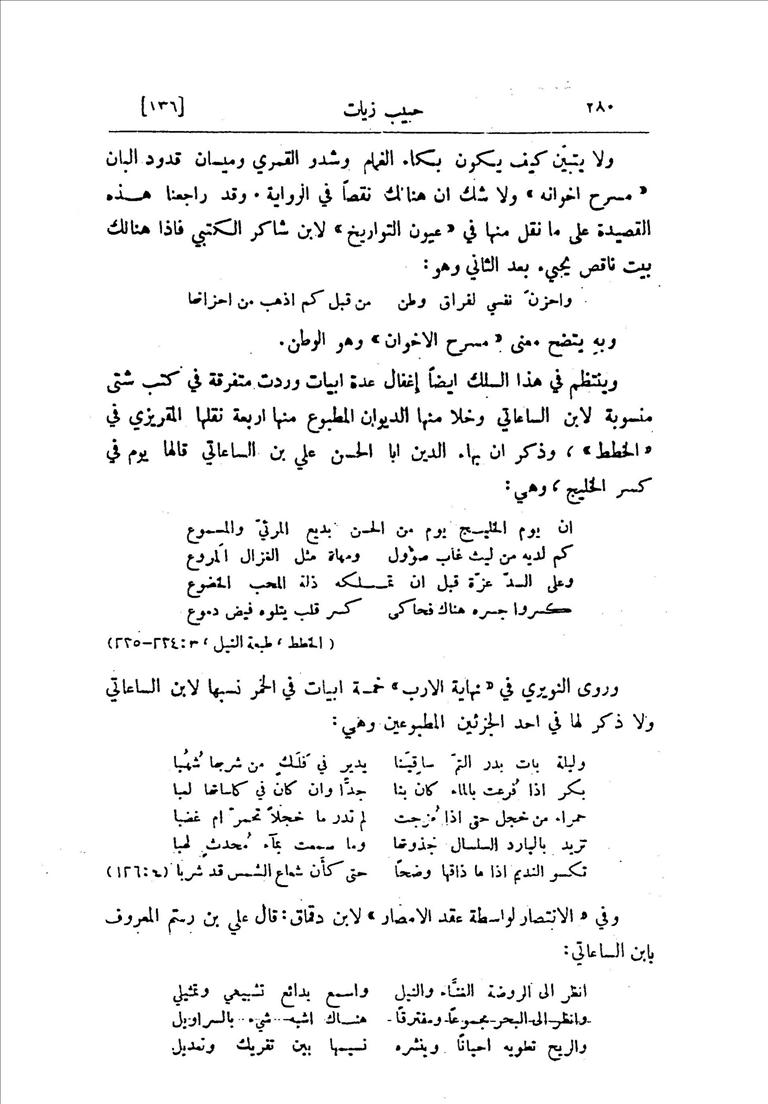 ٢٨٠ حبيب زيات [١٣٦]
ولا يتبيّن كيف يكون بكاء الغمام وشدو القمري وميسان قدود البان
« مسرح اخوانه » ولا شك ان هنالك نقصاً في الرواية . وقد راجعنا هذه
القصيدة على ما نقل منها في « عيون التواريخ » لابن شاكر الكتبي فاذا هنالك
بيت ناقص يجيء بعد الثاني وهو :
واحزنَ نفسي لفراق وطن من قبل كم اذهب من احزانها
وبهِ يتضح معنى « مسرح الاخوان » وهو الوطن.
وينتظم في هذا السلك ايضاً إغفال عدة ابيات وردت متفرقة في كتب شتى
منسوبة لابن الساعاتي وخلا منها الديوان المطبوع منها اربعة نقلها المقريزي في
« الخطط » ، وذكر ان بهاء الدين ابا الحسن علي بن الساعاتي قالها يوم في
كسر الخليج ، وهي :
ان يوم الخليج يوم من الحسن بديع المرئيّ والمسموع
كم لديه من ليث غاب صؤول ومهاة مثل الغزال المروع
وعلى السدّ عزّة قبل ان تملكه ذلة المحب الخضوع
كسروا جسره هناك فحاكى كسر قلب يتلوه فيض دموع
( الخطط ، طبعة النيل ، ٣ : ٢٢٤–٢٢٥)
وروى النويري في « نهاية الارب » خمسة ابيات في الخمر نسبها لابن الساعاتي
ولا ذكر لها في احد الجزئين المطبوعين وهي :
وليلة بات بدر التمّ ساقيَنا يدير في فَلَكٍ من شربها شُهُبا
بكر اذا قُرعت بالماء كان بنا جدًّا وان كان في كاساتها لعبا
حمراء من خجل حتى اذا مُزجت لم تدر ما خجلاً تحمرّ ام غضبا
تزيد بالبارد السلسال جذوتها وما سمعت بماء مُحدثٍ لهبا
تكسو النديم اذا ما ذاقها وضحًا حتى كأن شعاع الشمس قد شربا (٤ : ١٢٦)
وفي « الانتصار لواسطة عقد الامصار » لابن دقماق : قال علي بن رستم المعروف
بابن الساعاتي :
انظر الى الروضة الغنَّاء والنيل واسمع بدائع تشبيهي وتمثيلي
وانظر الى البحر مجموعًا ومفترقًا هناك اشبه شيء بالسراويل
والريح تطويه احيانًا وينشره نسيمها بين تفريك وتعديل